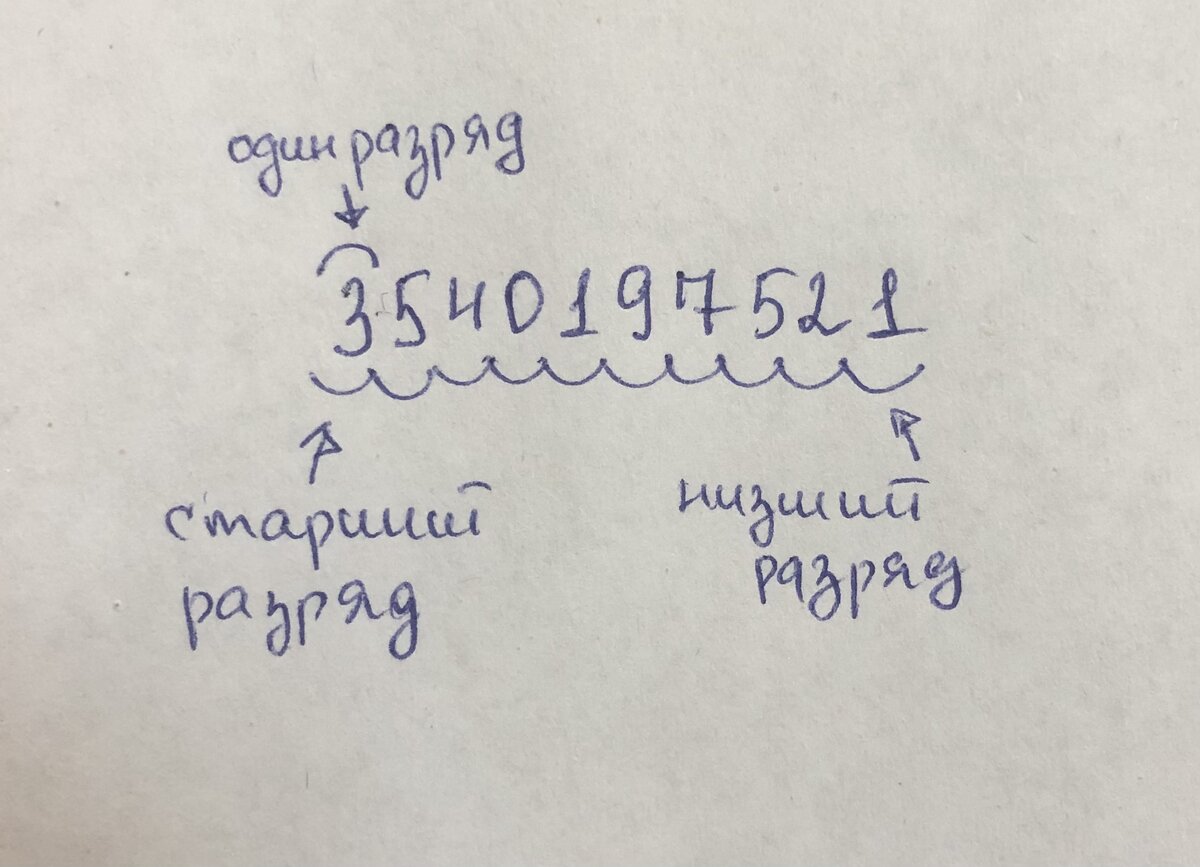 один разряд
3540197521
старший
разряд
низший
разряд